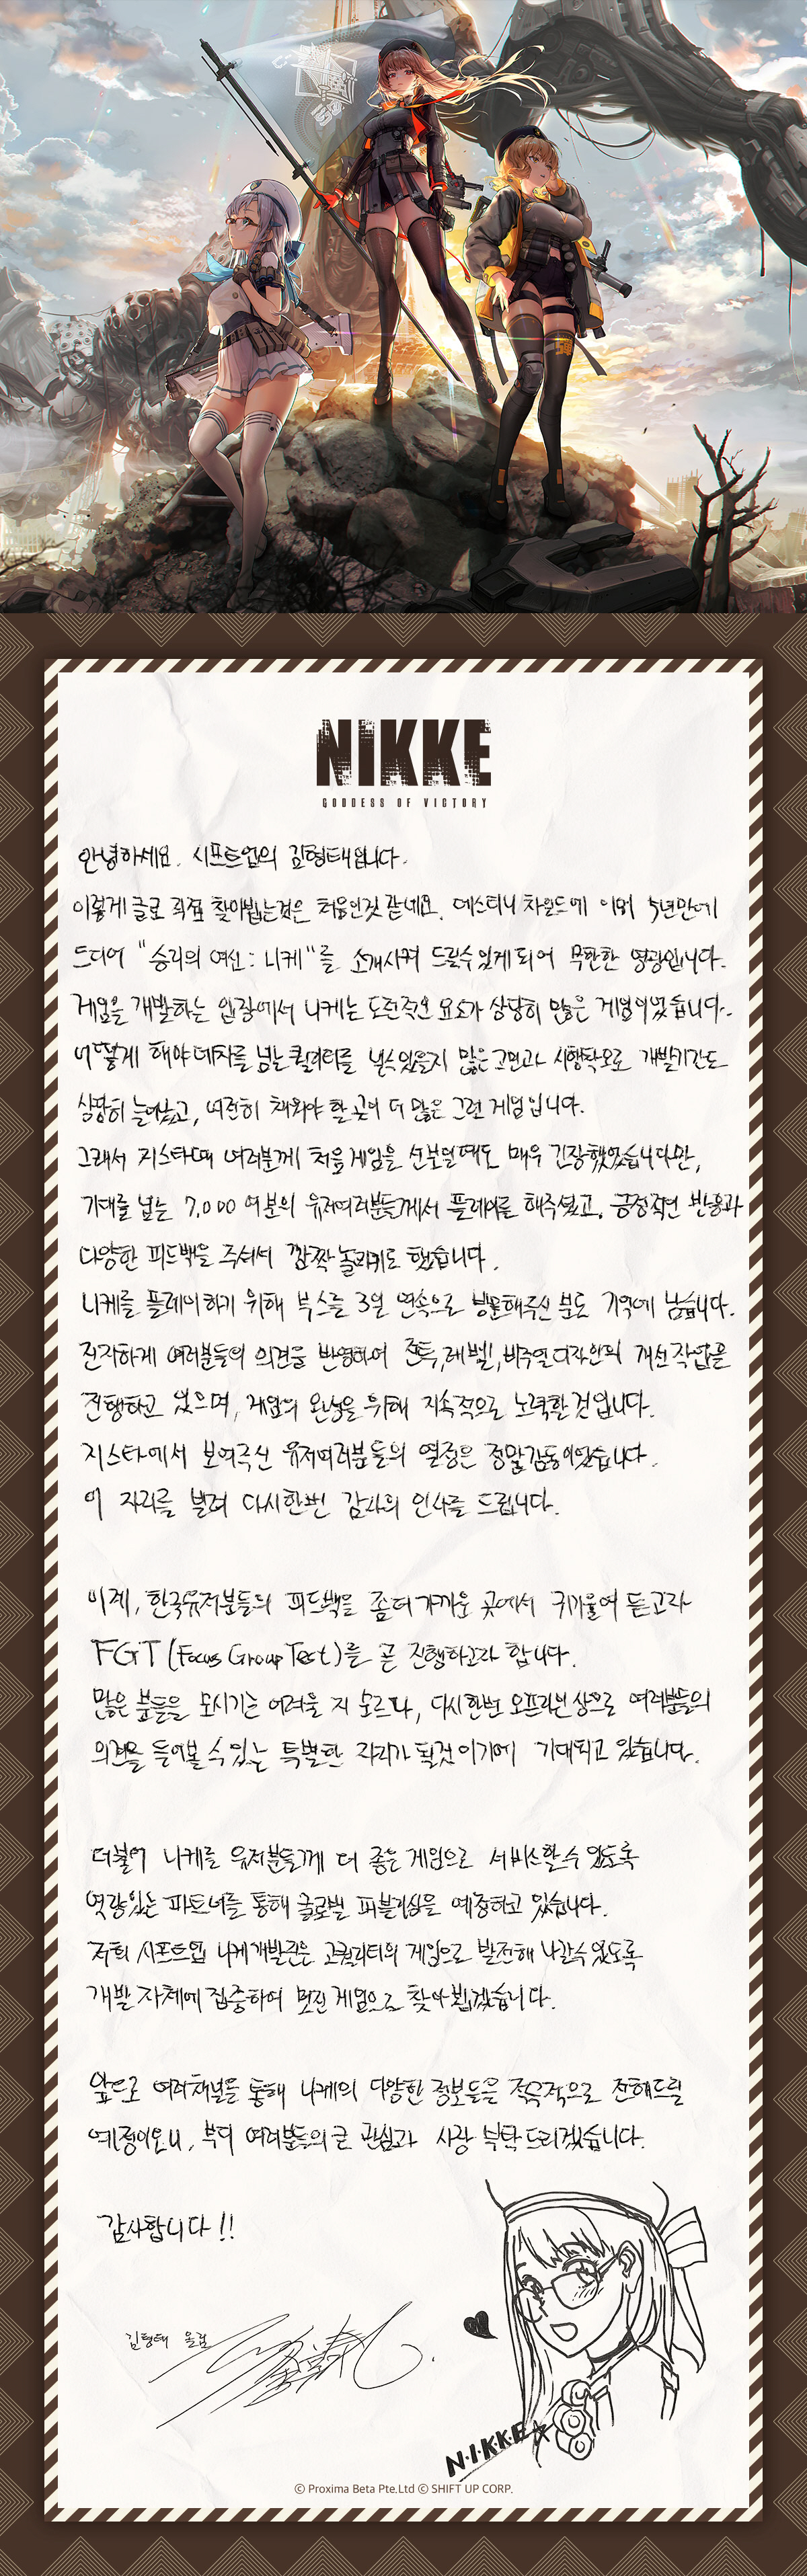 NIKKE
GODDESS OF VICTORY
안녕하세요. 시프트업의 김형태입니다.
이렇게 글로 직접 찾아뵙는것은 처음인것 같네요. 데스티니 차일드에 이어 5년만에
드디어 "승리의 여신 : 니케"를 소개시켜 드릴수 있게 되어 무한한 영광입니다.
게임을 개발하는 입장에서 니케는 도전적인 요소가 상당히 많은 게임이었습니다.
어떻게 해야 데차를 넘는 퀄리티를 낼수있을지 많은 고민과 시행착오로 개발기간도
상당히 늘어났고, 여전히 채워야 할 곳이 더 많은 그런 게임입니다.
그래서 지스타때 여러분께 처음 게임을 선보일때도 매우 긴장했었습니다만,
기대를 넘는 7,000 여분의 유저여러분들께서 플레이를 해주셨고, 긍정적인 반응과
다양한 피드백을 주셔서 깜짝 놀라기도 했습니다.
니케를 플레이하기 위해 부스를 3일 연속으로 방문해주신 분도 기억에 남습니다.
진지하게 여러분들의 의견을 반영하여 전투, 레벨, 비주얼 디자인의 개선작업을
진행하고 있으며, 게임의 완성을 위해 지속적으로 노력할 것입니다.
지스타에서 보여주신 유저여러분들의 열정은 정말 감동이었습니다.
이 자리를 빌려 다시한번 감사의 인사를 드립니다.
이제, 한국유저분들의 피드백을 좀더 가까운 곳에서 귀기울여 듣고자
FGT (Focus Group Test)를 곧 진행하고자 합니다.
많은 분들을 모시기는 어려울 지 모르나, 다시한번 오프라인 상으로 여러분들의
의견을 들어볼 수 있는 특별한 자리가 될것 이기에 기대되고 있습니다.
더불어 니케를 유저분들께 더 좋은 게임으로 서비스할수 있도록
역량있는 파트너를 통해 글로벌 퍼블리싱을 예정하고 있습니다.
저희 시프트업 니케개발진은 고퀄리티의 게임으로 발전해 나갈수 있도록
개발 자체에 집중하여 멋진 게임으로 찾아 뵙겠습니다.
앞으로 여러채널을 통해 니케의 다양한 정보들을 적극적으로 전해드릴
예정이오니, 부디 여러분들의 큰 관심과 사랑 부탁 드리겠습니다.
감사합니다!!
김형태 올림
N·I·K·K·E
ⓒ Proxima Beta Pte.Ltd ⓒ SHIFT UP CORP.